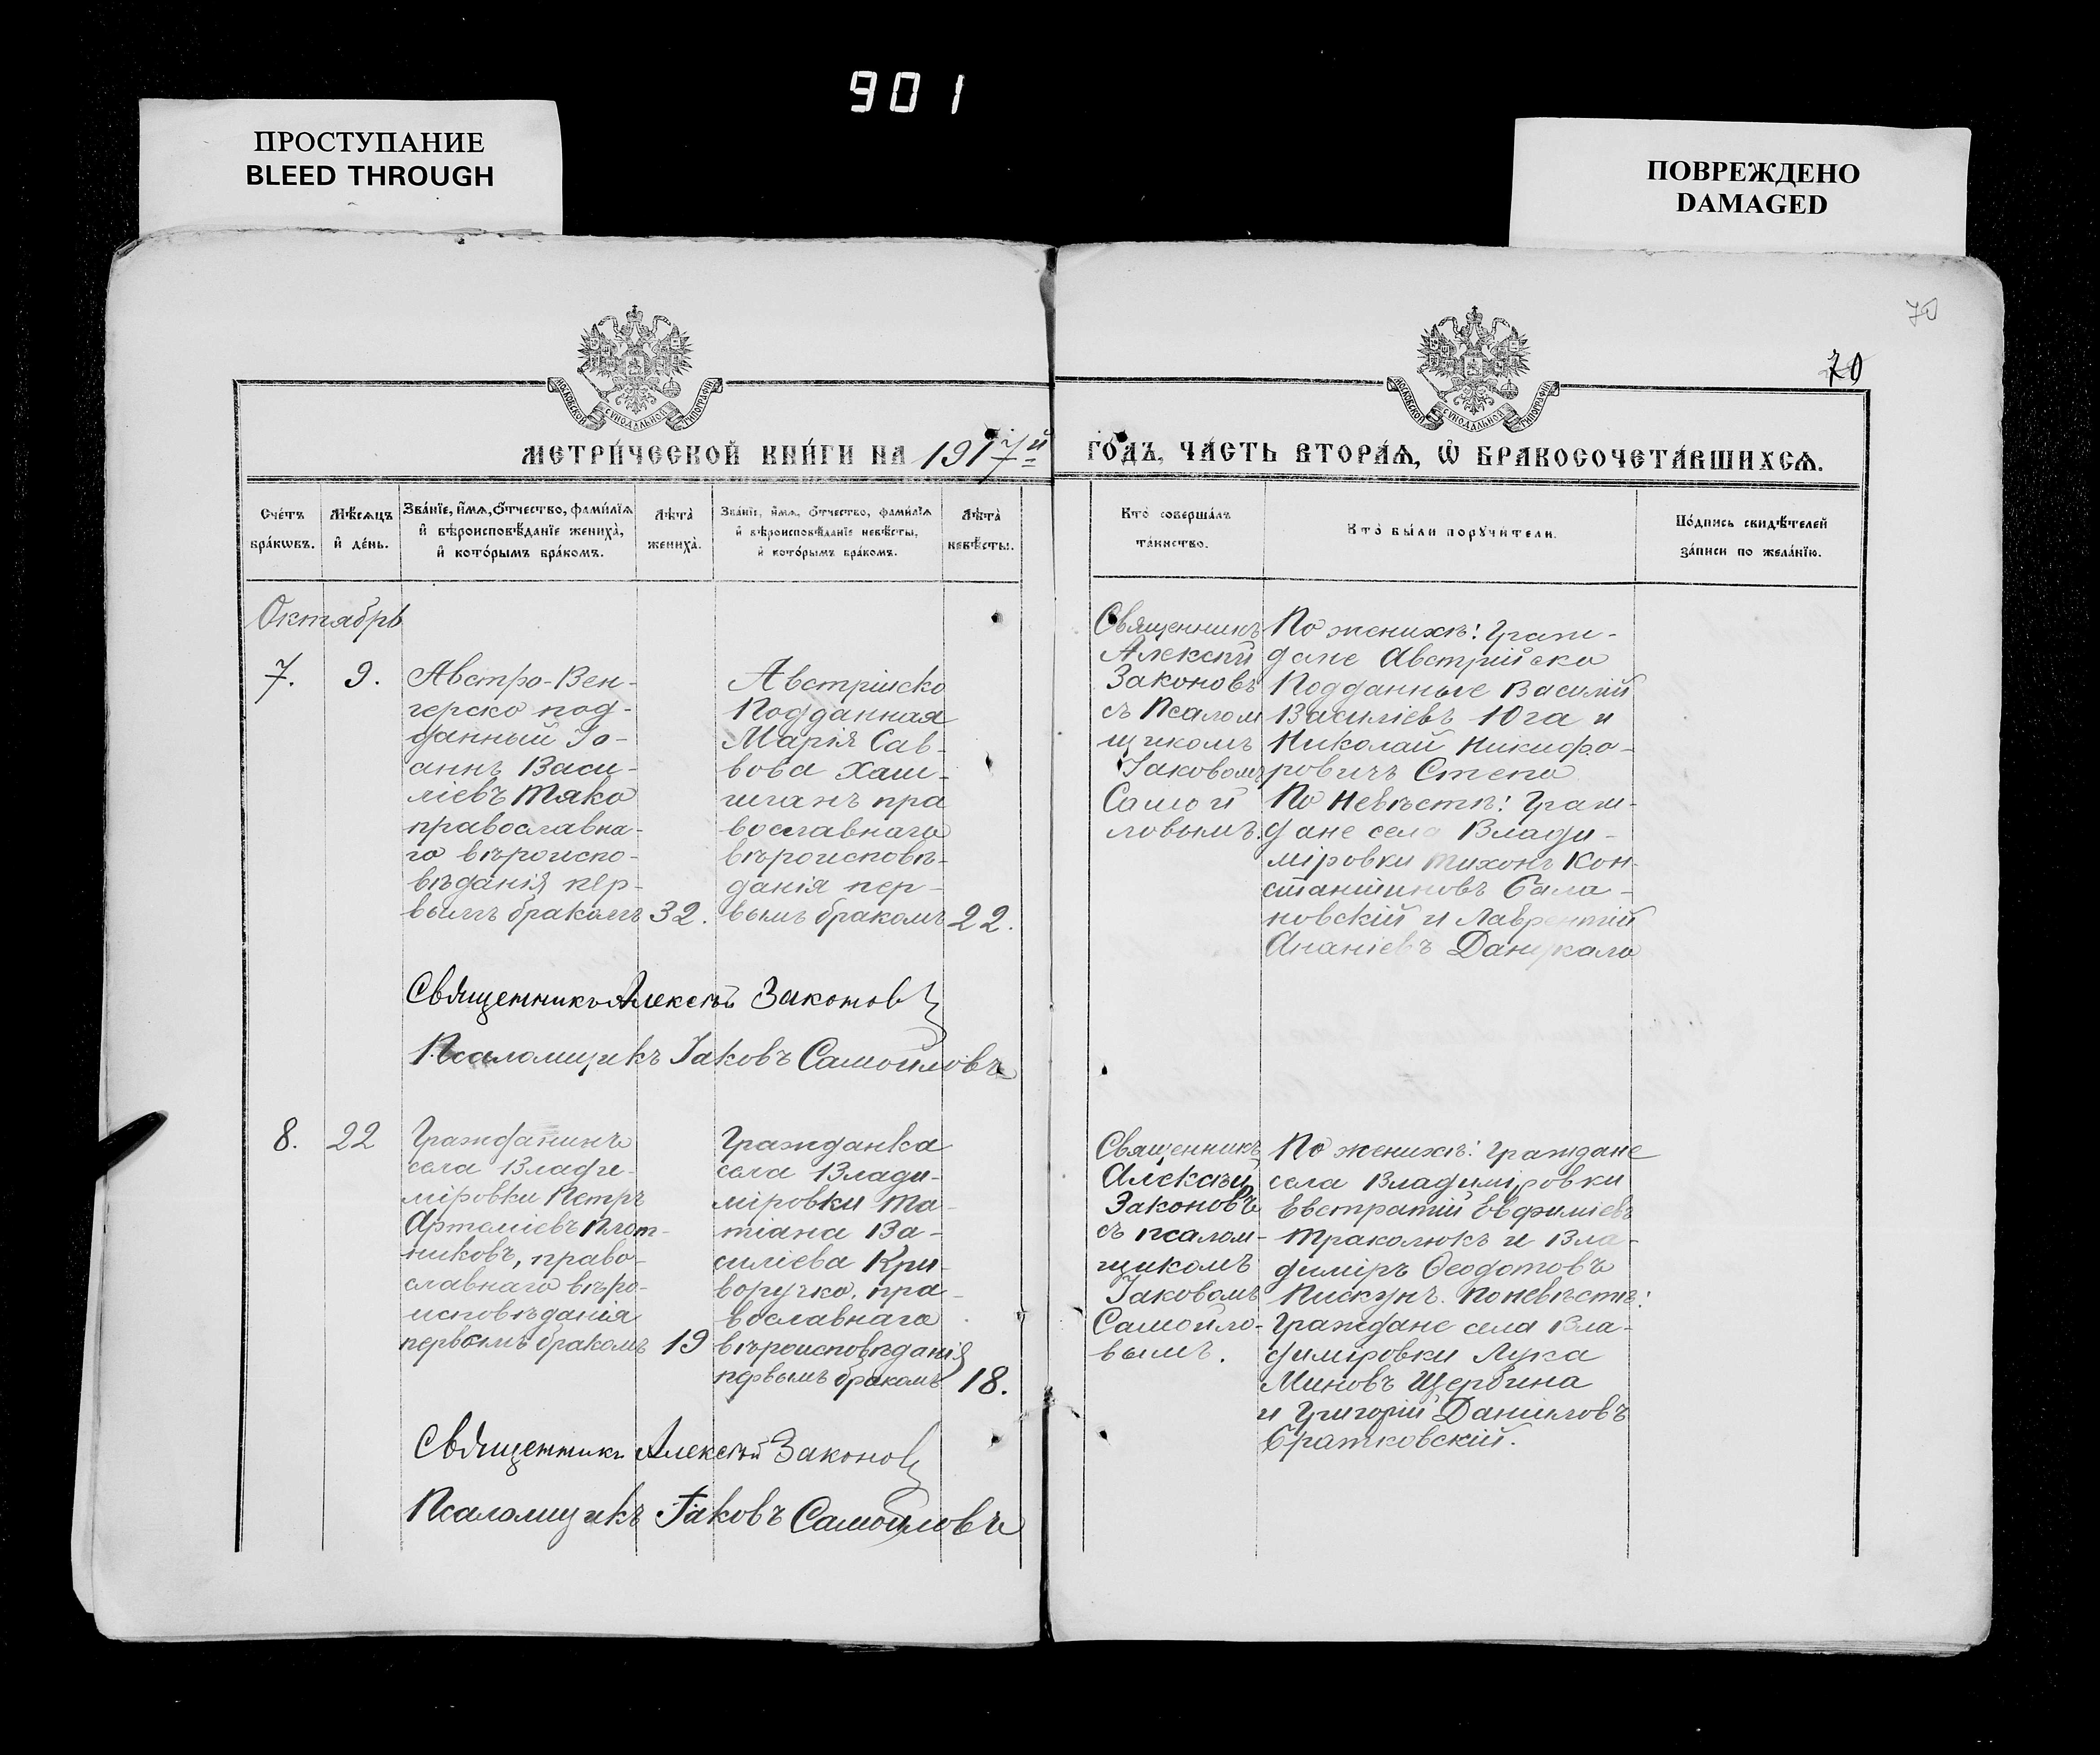 901
ПРОСТУПАНИЕ
BLEED THROUGH
ПОВРЕЖДЕНО
DAMAGED
70
70
МОСКОВСКОЙ СѴНОДАЛЬНОЙ ТИПОГРАФІИ
МОСКОВСКОЙ СѴНОДАЛЬНОЙ ТИПОГРАФІИ
МЕТРИ́ЧЕСКОЙ КНИ́ГИ НА 1917й
ГО́ДЪ, ЧА́СТЬ ВТОРА́Ѧ, Ѡ҆ БРАКОСОЧЕТА́ВШИХСѦ.
Сче́тъ
бра́кѡвъ.
Мѣ́сѧцъ
и҆ де́нь.
Зва́нїе, и҆́мѧ, ѻ҆́тчество, фами́лїѧ
и҆ вѣроисповѣ́данїе жениха̀,
и҆ кото́рымъ бра́комъ.
Лѣ́та
жениха̀.
Зва́нїе, и҆́мѧ, ѻ҆́тчество, фами́лїѧ
и҆ вѣроисповѣ́данїе невѣ́сты,
и҆ кото́рымъ бра́комъ.
Лѣ́та
невѣ́сты.
Кто̀ соверша́лъ
та́инство.
Кто̀ бы́ли порꙋчи́тели.
По́дпись свидѣ́телей
за́писи по жела́нїю.
Октябрь
7.
9.
Австро-Вен-
герско под-
данный Іо-
аннъ Васи-
ліевъ Тяко
православна-
го вѣроиспо-
вѣданія пер-
вымъ бракомъ
32.
Австрійско
Подданная
Марія Сав-
вова Хаш-
пра
вославнаго
вѣроисповѣ-
данія пер-
вымъ бракомъ
22.
Священникъ
Алексѣй
Законовъ
съ Псалом
щикомъ
Іаковомъ
Самой
ловымъ.
По женихѣ: Граж-
дане Австрійско
Подданные Василій
Василіевъ Юга и
Николай Никифо-
ровичъ Степа
По Невѣстѣ: Граж-
дане села Влади-
міровки Тихонъ Кон-
стантиновъ
новскій и Лаврентій
Ананіевъ
Священникъ Алексѣй Законовъ
Псаломщикъ Іаковъ Самойловъ
8.
22
Гражданинъ
села Влади-
міровки Петръ
Артеміевъ Плот-
никовъ, право-
славнаго вѣро-
исповѣданія
первымъ бракомъ
19
Гражданка
села Влади-
міровки Та-
тіана Ва-
силіева Кри-
воручко, пра-
вославнаго
вѣроисповѣданія
первымъ бракомъ
18.
Священникъ
Алексѣй
Законовъ
съ псалом-
щикомъ
Іаковомъ
Самойло-
вымъ.
По женихѣ: Граждане
села Владиміровки
Евстратій Евфиміевъ
Траколюкъ и Вла-
диміръ Ѳеодотовъ
Пискунъ. По невѣстѣ:
Граждане села Вла-
диміровки Лука
Миновъ Щербина
и Григорій Даниловъ
Братковскій.
Священникъ Алексѣй Законовъ
Псаломщикъ Іаковъ Самойловъ